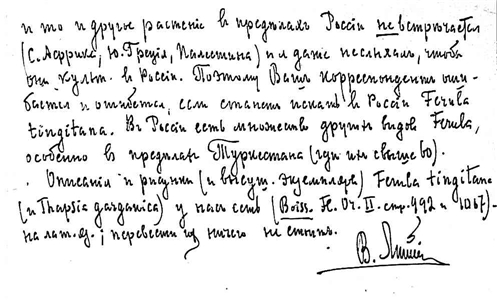 и то и другое растение в пределах России не встречается
(С. Африка, Ю. Греция, Палестина) и я даже не слыхал, чтобы
они культ. в России. Поэтому Ваш корреспондент оши-
бается и ошибется, если станет искать в России Ferula
tingitana. В России есть множество других видов Ferula,
особенно в пределах Туркестана (где их свыше 60).
Описания и рисунки (и высуш. экземпляры) Ferula tingitana
(и Thapsia garganica) у нас есть (Boiss. Fl. Or. II. стр. 992 и 1067)-
на лат. яз.; перевести их ничего не стоит.
В.